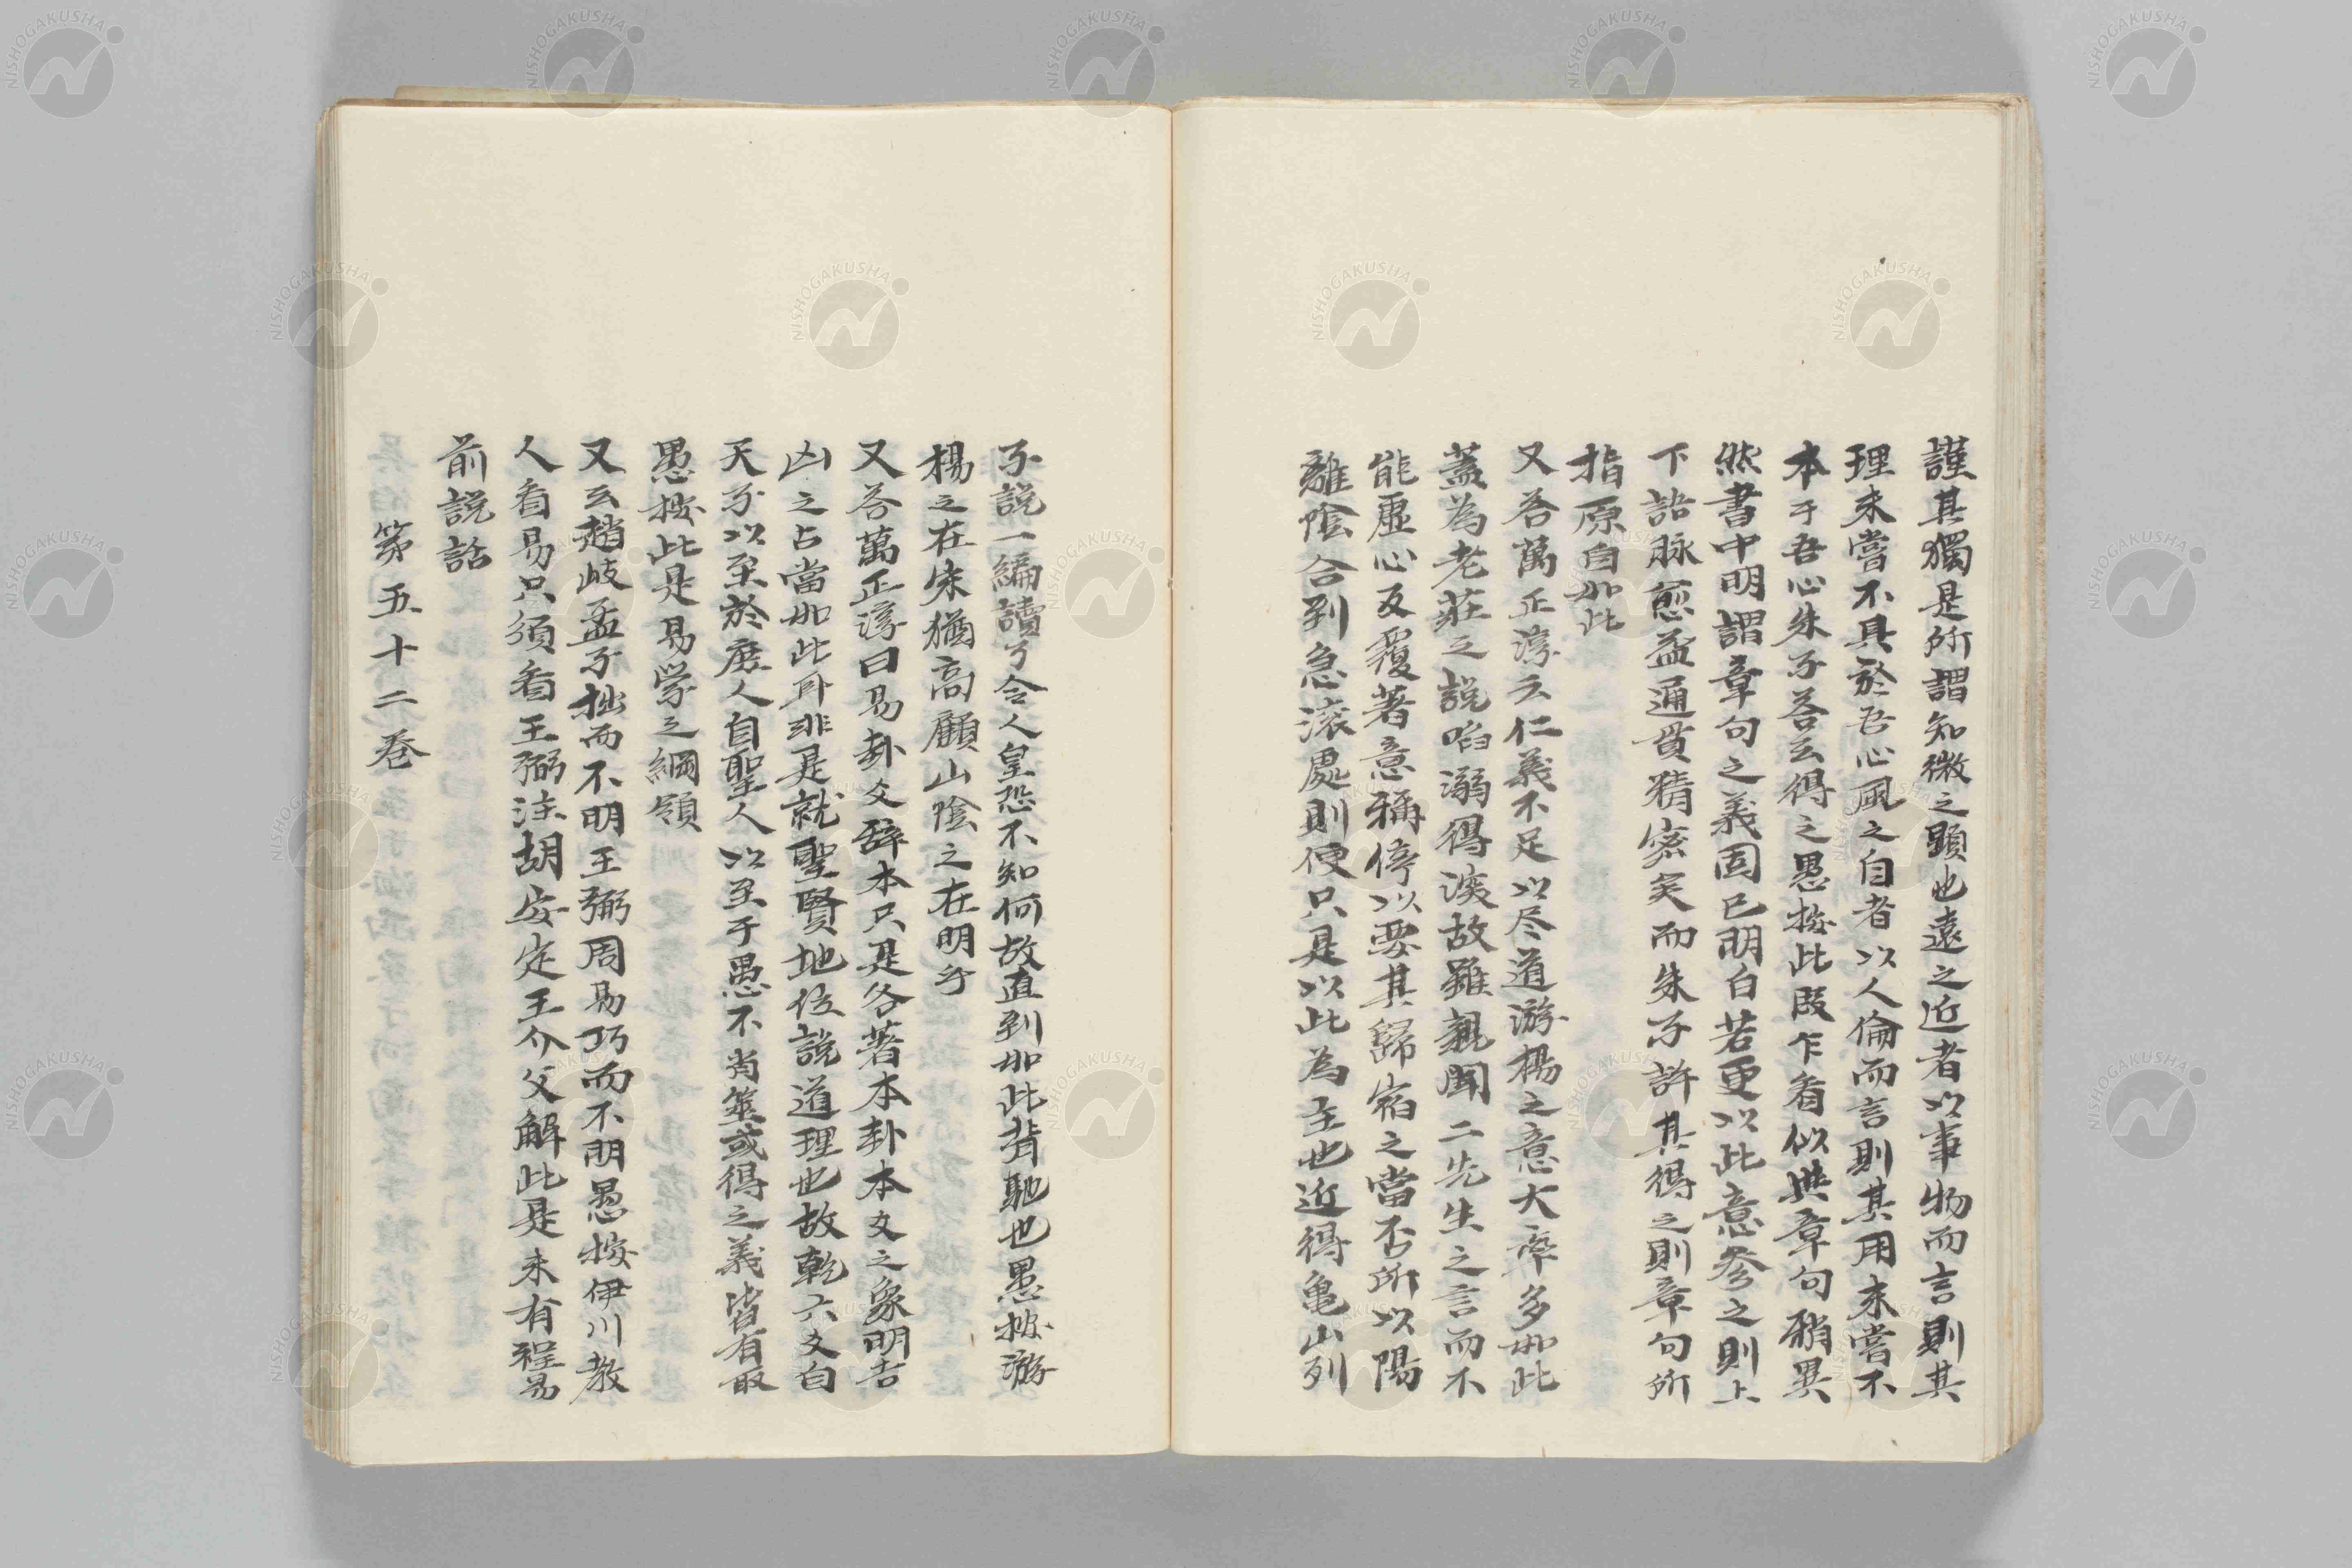 謹其獨是所謂知微之顕也遠之近者以事物而言則其
理未嘗不具於吾心風之自者以人倫而言則其用未嘗不
本于吾心朱子荅云得之愚按此段乍看似與章句稍異
然書中明謂章句之義固已明白若更以此意参之則上
下語脉愈益通貫精密矣而朱子許其得之則章句所
指原自如此
又荅萬正淳云仁義不足以尽道游楊之意大率多如此
蓋為老荘之説陷溺得深故雖親聞二先生之言而不
能虚心反覆著意称停以要其歸宿之當否所以陽
離陰合到急滚處則便只是以此為主也近得亀山列
子説一編讀了令人皇恐不知何故直到如此背馳也愚按游
楊之在宋猶高顧山陰之在明乎
又荅萬正淳曰易卦爻辞本只是各著本卦本爻之象明吉
凶之占當如此耳非是就聖賢地位説道理也故乾六爻自
天子以至於庶人自聖人以至于愚不肖筮或得之義皆有取
愚按此是易学之綱領
又云趙岐孟子拙而不明王弼周易巧而不明愚按伊川教
人看易只須看王弼注胡安定王介父解此是未有程易
前説話
第五十二巻
NISHOGAKUSHA